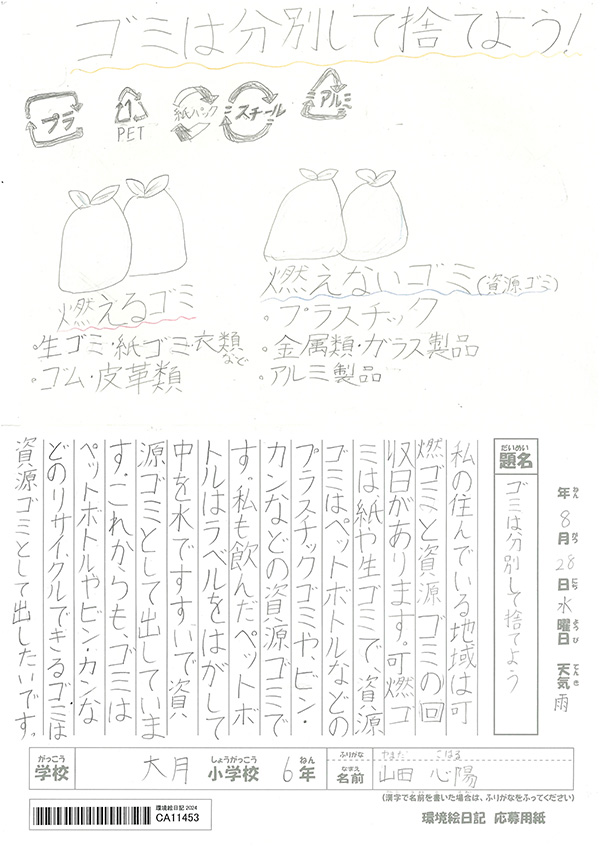 ゴミは分別して捨てよう!
プラ
PET
紙パック
スチール
アルミ
燃えるゴミ
・生ゴミ・紙ゴミ・衣類など
・ゴム・皮革類
燃えないゴミ(資源ゴミ)
・プラスチック
・金属類・ガラス製品
・アルミ製品
年 8月 28日 水曜日 天気 雨
ねん がつ にち ようび てんき
だいめい
題名
ゴミは分別して捨てよう
私の住んでいる地域は可
燃ゴミと資源ゴミの回
収日があります。可燃ゴ
ミは、紙や生ゴミで、資源
ゴミはペットボトルなどの
プラスチックゴミや、ビン・
カンなどの資源ゴミで
す。私も飲んだペットボ
トルはラベルをはがして
中を水ですすいで資
源ゴミとして出していま
す。これからも、ゴミは
ペットボトルやビン・カンな
どのリサイクルできるゴミは
資源ゴミとして出したいです。
がっこう しょうがっこう ねん
学校 大月 小学校 6年
ふりがな やまだ こはる
なまえ
名前 山田 心陽
(漢字で名前を書いた場合は、ふりがなをふってください)
環境絵日記2024
CA11453
環境絵日記 応募用紙